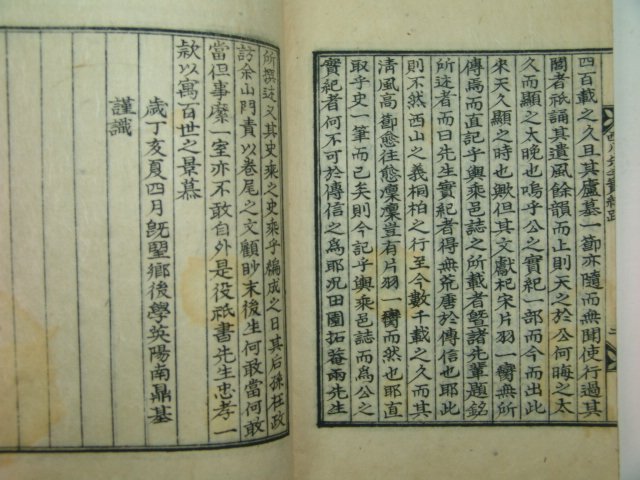 四百載之久且其廬墓一節亦隨而無聞使行過其
閭者祇誦其遺風餘韻而止則天之於公何晦之太
久而顯之大晚也嗚乎公之實紀一部而今而出此
來天久顯之時也歟但其文獻杞宋片羽一臠無所
傳焉而直記乎輿乘邑誌之所載者曁諸先輩題銘
所述者而曰先生實紀者得無荒唐於傳信也耶此
則不然西山之義桐柏之行至今數千載之久而其
淸風高節愈往愈凜凜豈有片羽一臠而然也耶直
取乎史一筆而已矣則今記乎輿乘邑誌而爲公之
實紀者何不可於傳信之爲耶况田園拓菴兩先生
所撰述又其史乘之史乘乎編成之日其后孫枉政
訪余山門責以卷尾之文顧眇末後生何敢當何敢
當但事縻一室亦不敢自外是役祇書先生忠孝一
欵以寓百世之景慕
歲丁亥夏四月旣望鄕後學英陽南鼎基
謹識